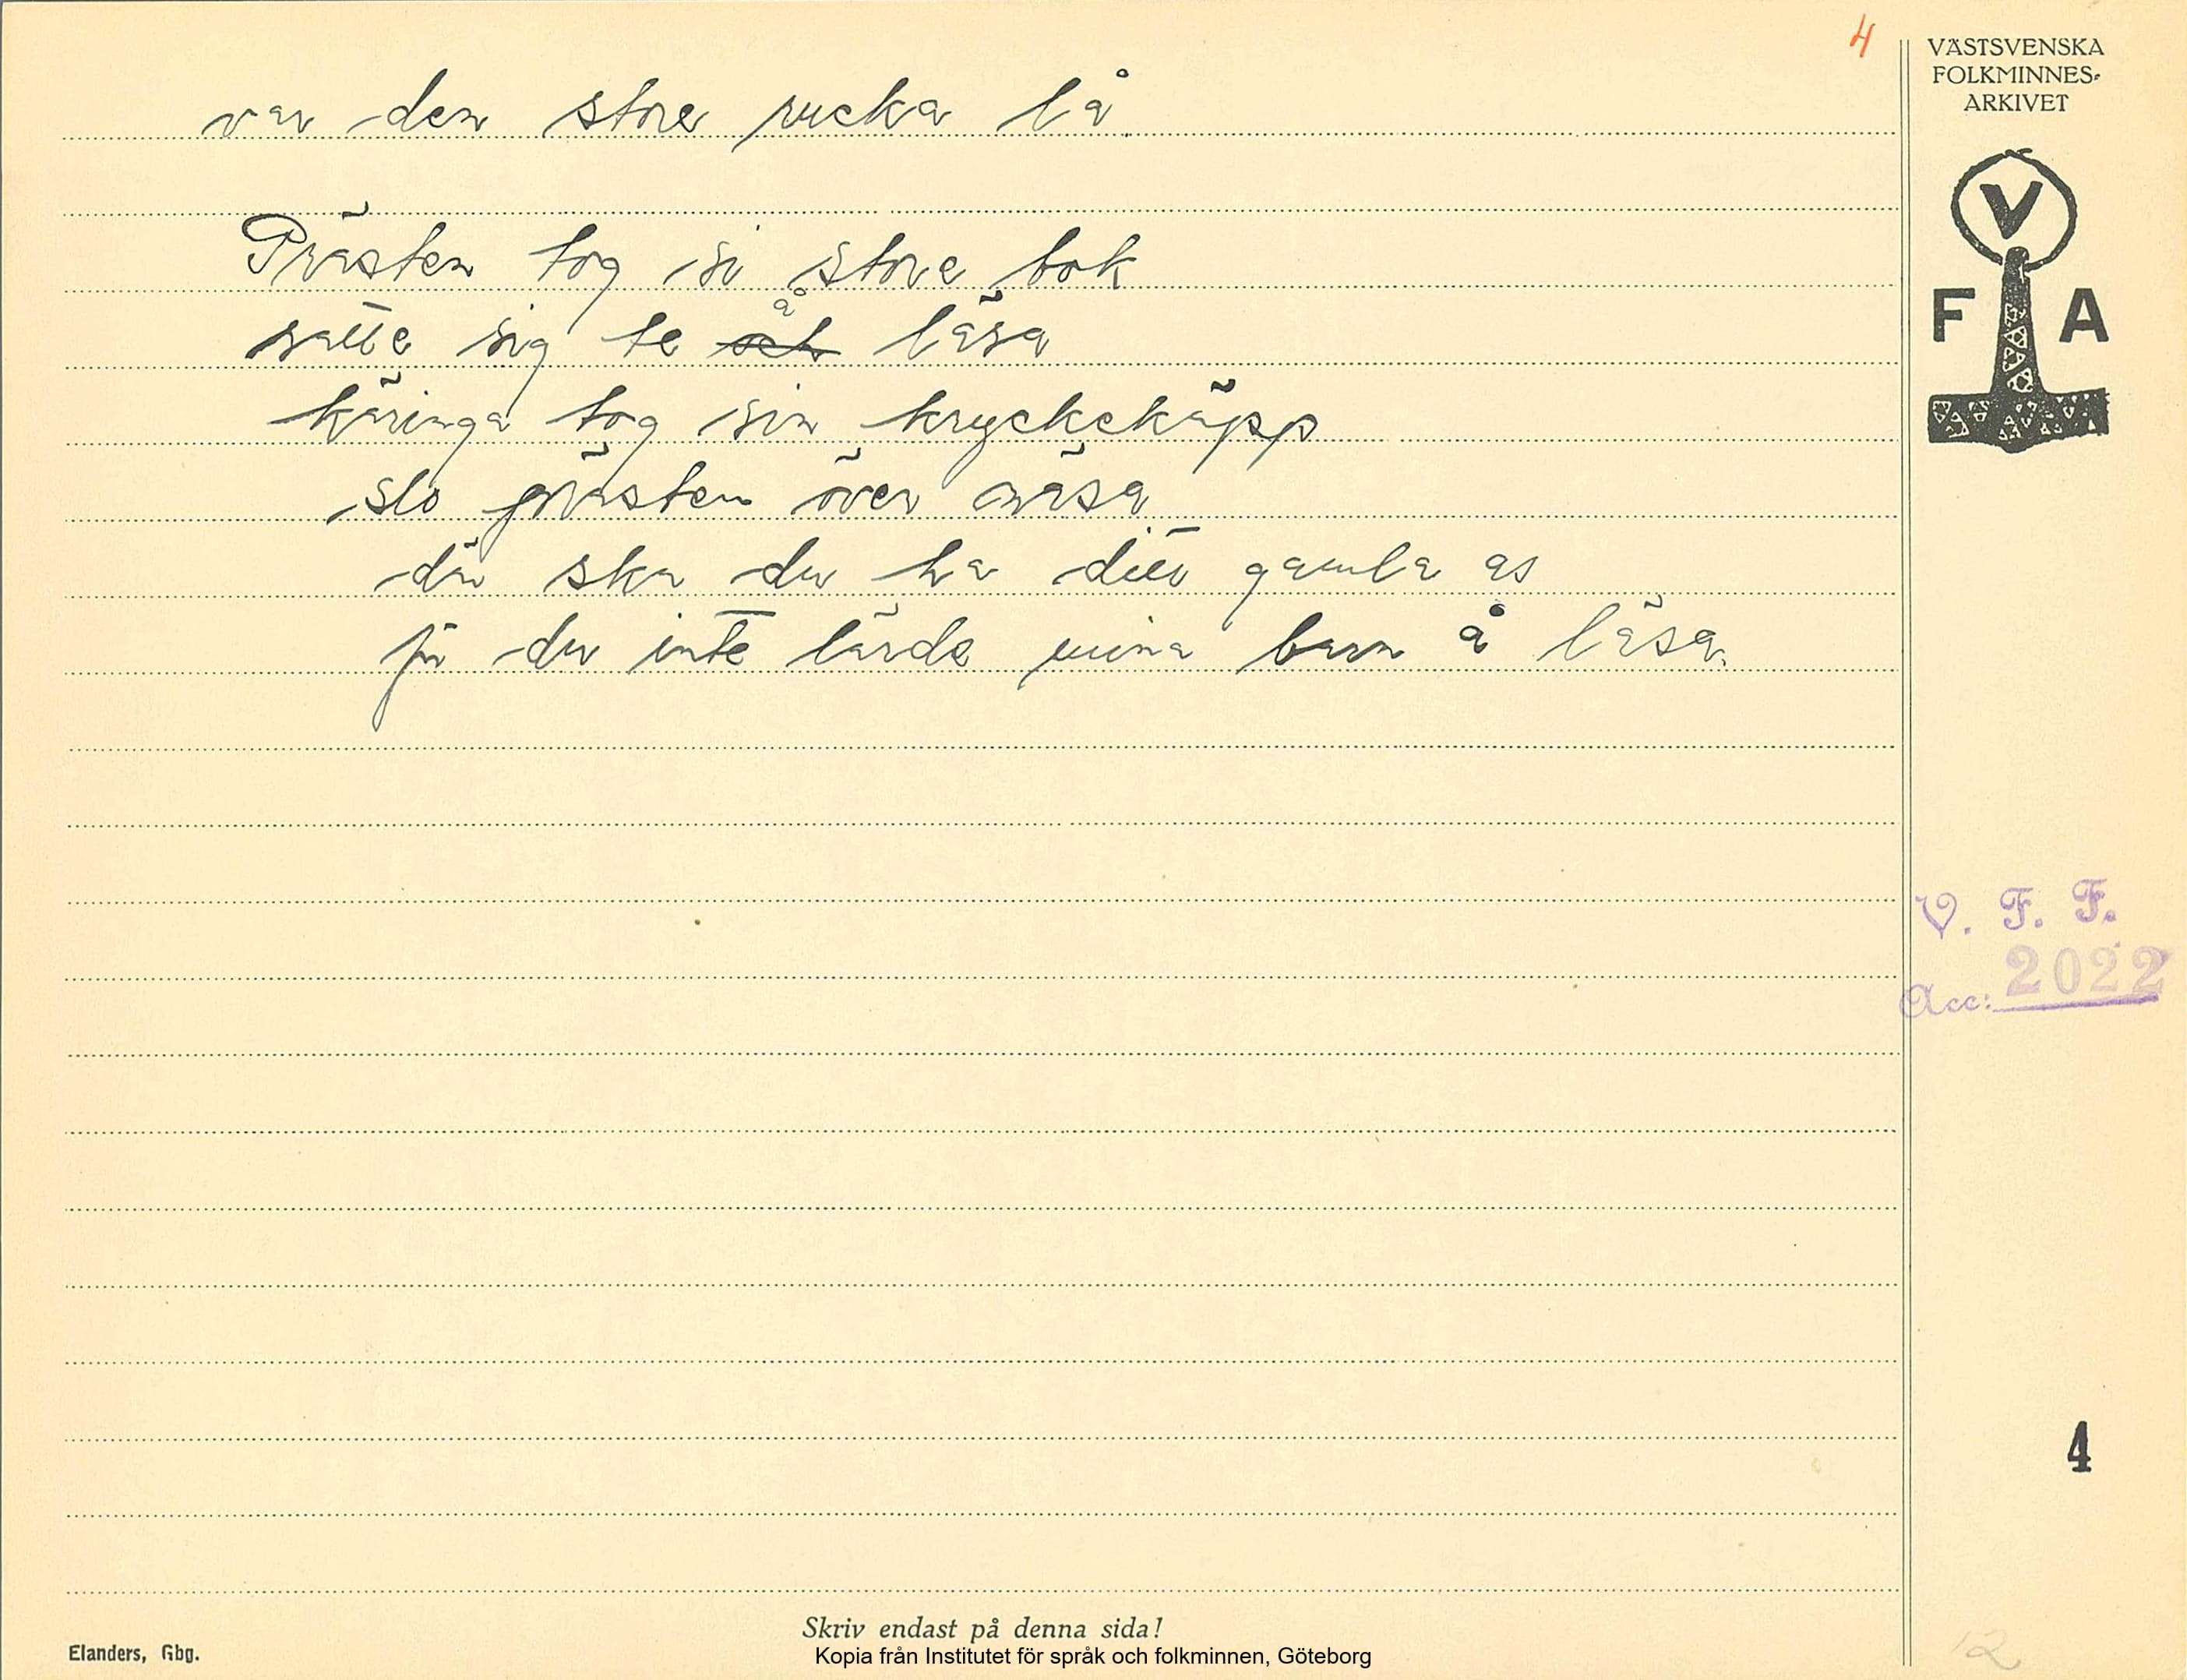 4
var den store rucka lå.
Prästen tog si store bok
satte sig te och å läsa
käringa tog sin kryckekäpp
slo prästen över näsa
där ska du ha ditt gamla as
för du inte lärde mina barn å läsa.
VÄSTSVENSKA
FOLKMINNES-
ARKIVET
V
F A
V. F. F.
Acc: 2022
4
12
Skriv endast på denna sida!
Elanders, Gbg.
Kopia från Institutet för språk och folkminnen, Göteborg